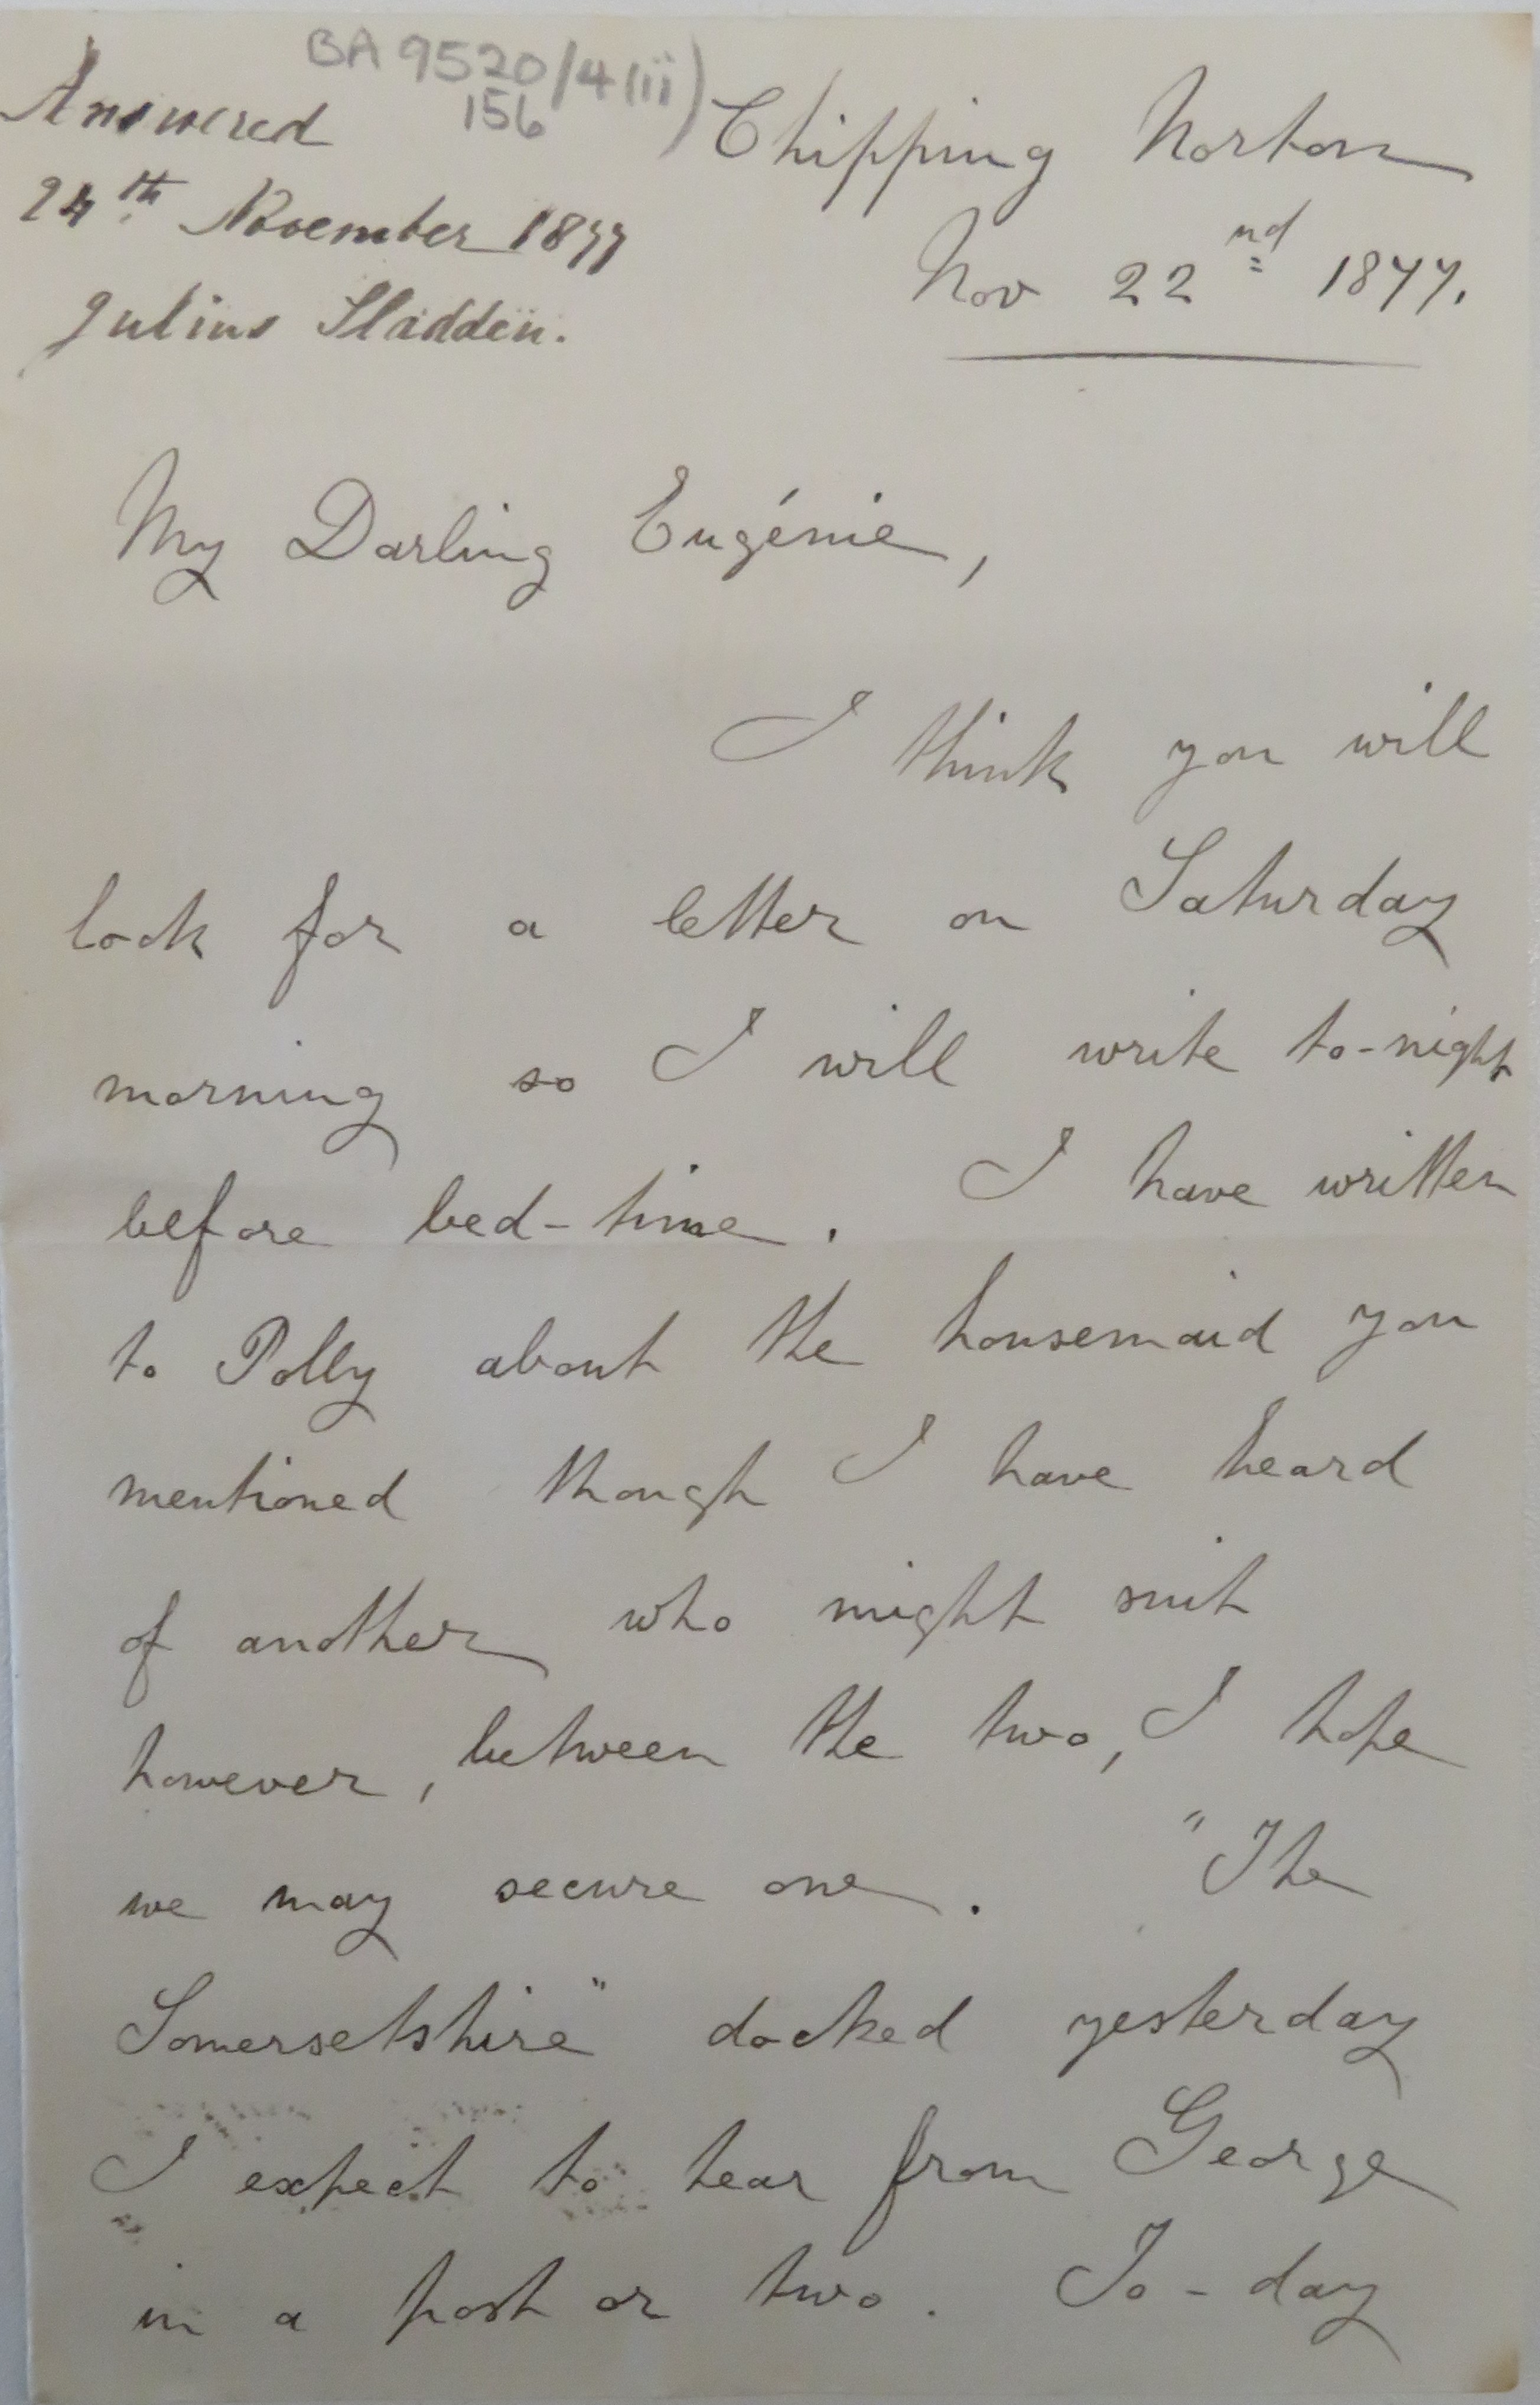 BA 9520/4(ii)
156
Answered
24th November 1877
Julius Sladden.
Chipping Norton
Nov 22nd 1877.
My Darling Eugénie,
I think you will
look for a letter on Saturday
morning so I will write to-night
before bed-time. I have written
to Polly about the housemaid you
mentioned though I have heard
of another who might suit
however, between the two, I hope
we may secure one. "The
Somersetshire" docked yesterday
I expect to hear from George
in a post or two. To-day